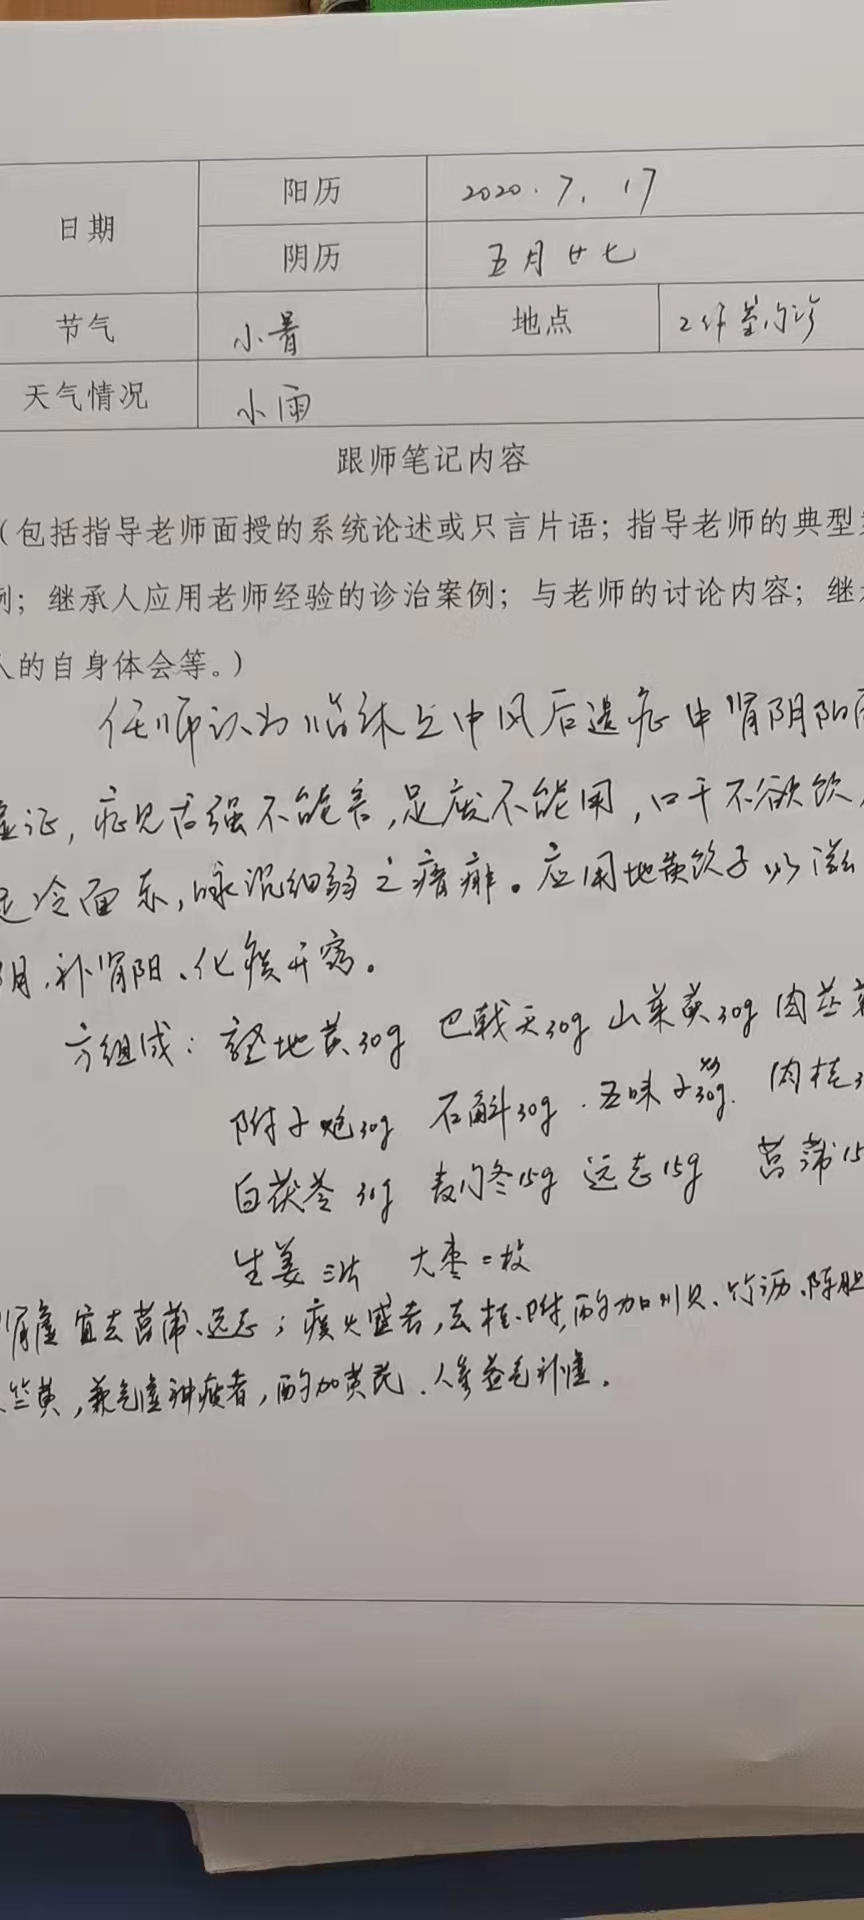 日期 阳历 2020.7.17
阴历 五月廿七
节气 小暑 地点 工作室门诊
天气情况 小雨
跟师笔记内容
（包括指导老师面授的系统论述或只言片语；指导老师的典型
例；继承人应用老师经验的诊治案例；与老师的讨论内容；继
人的自身体会等。）
任师认为临床上中风后遗症中肾阴阳两
虚证，症见舌强不能言，足废不能用，口干不欲饮，
足冷面赤，脉沉细弱之瘖痱。应用地黄饮子以滋
阴、补肾阳、化痰开窍。
方组成：熟地黄30g 巴戟天30g 山茱萸30g 肉苁蓉
附子炮30g 石斛30g 五味子炒30g 肉桂3
白茯苓30g 麦门冬15g 远志15g 菖蒲15
生姜三片 大枣二枚
肾虚宜去菖蒲、远志；痰火盛者，去桂、附，酌加川贝、竹沥、陈胆
竺黄，兼气虚神疲者，酌加黄芪、人参益气补虚。